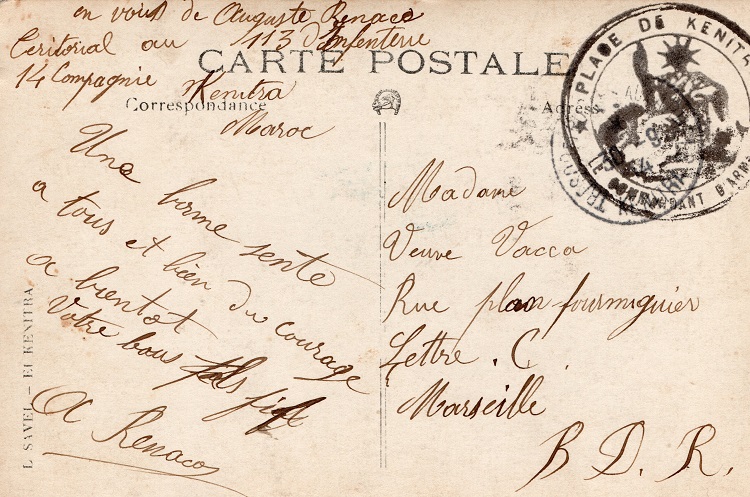 en vois de Auguste Renaco
Teritorial au 113 d'Infenterie
14 Compagnie Kenitra
Maroc
CARTE POSTALE
Correspondance
Adresse
Une bonne sente
a tous et bien du courage
a bientot
Votre bous fils
A Renaco
Madame
Veuve Vacca
Rue plan fourmiguier
Lettre. C.
Marseille
B. D. R.
PLACE DE KENITRA
LE COMMANDANT D'ARMES
TRESOR
L SAVEL — EL KENITRA